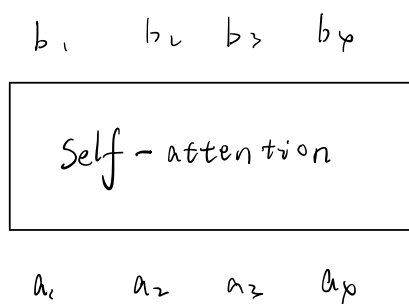 b₁ b₂ b₃ b₄
Self-attention
a₁ a₂ a₃ a₄